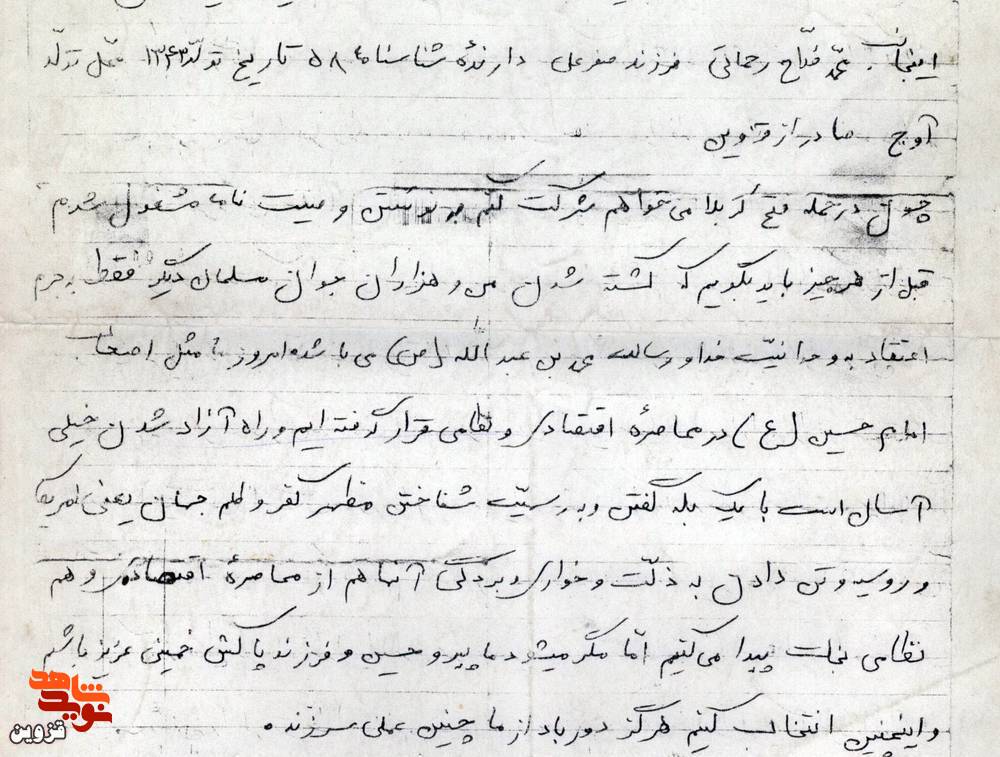 اینجانب محمد فتاح رحمانی فرزند صفرعلی دارندهٔ شناسنامه ۵۸ تاریخ تولّد ۱۳۴۳ محل تولّد
آوج صادر از قزوین
چون در حمله فتح کربلا می‌خواهم شرکت کنم به نوشتن وصیت نامه مشغول شدم
قبل از هر چیز باید بگویم که کشته شدن من و هزاران جوان مسلمان دیگر فقط به جرم
اعتقاد به وحدانیّت خدا و رسالت محمد بن عبدالله (ص) می باشد امروز ما مثل اصحاب
امام حسین (ع) در محاصرهٔ اقتصادی و نظامی قرار گرفته ایم و راه آزاد شدن خیلی
آسان است با یک بله گفتن و به رسمیّت شناختن مظهر کفر و ظلم جهان یعنی امریکا
و روسیه و تن دادن به ذلّت و خواری و بردگی آنها هم از محاصرهٔ اقتصادی و هم
نظامی نجات پیدا می‌کنیم امّا مگر میشود ما پیرو حسین و فرزند پاکش خمینی عزیز باشیم
و اینچنین انتخاب کنیم هرگز دور باد از ما چنین عملی سر زند.
نوید شاهد
قزوین